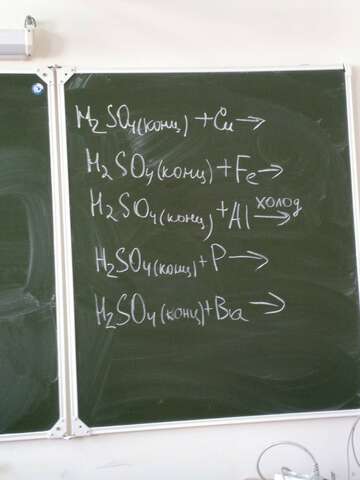 H₂SO₄(конц) + Cu →
H₂SO₄(конц) + Fe →
H₂SO₄(конц) + Al холод →
H₂SO₄(конц) + P →
H₂SO₄(конц) + Ba →